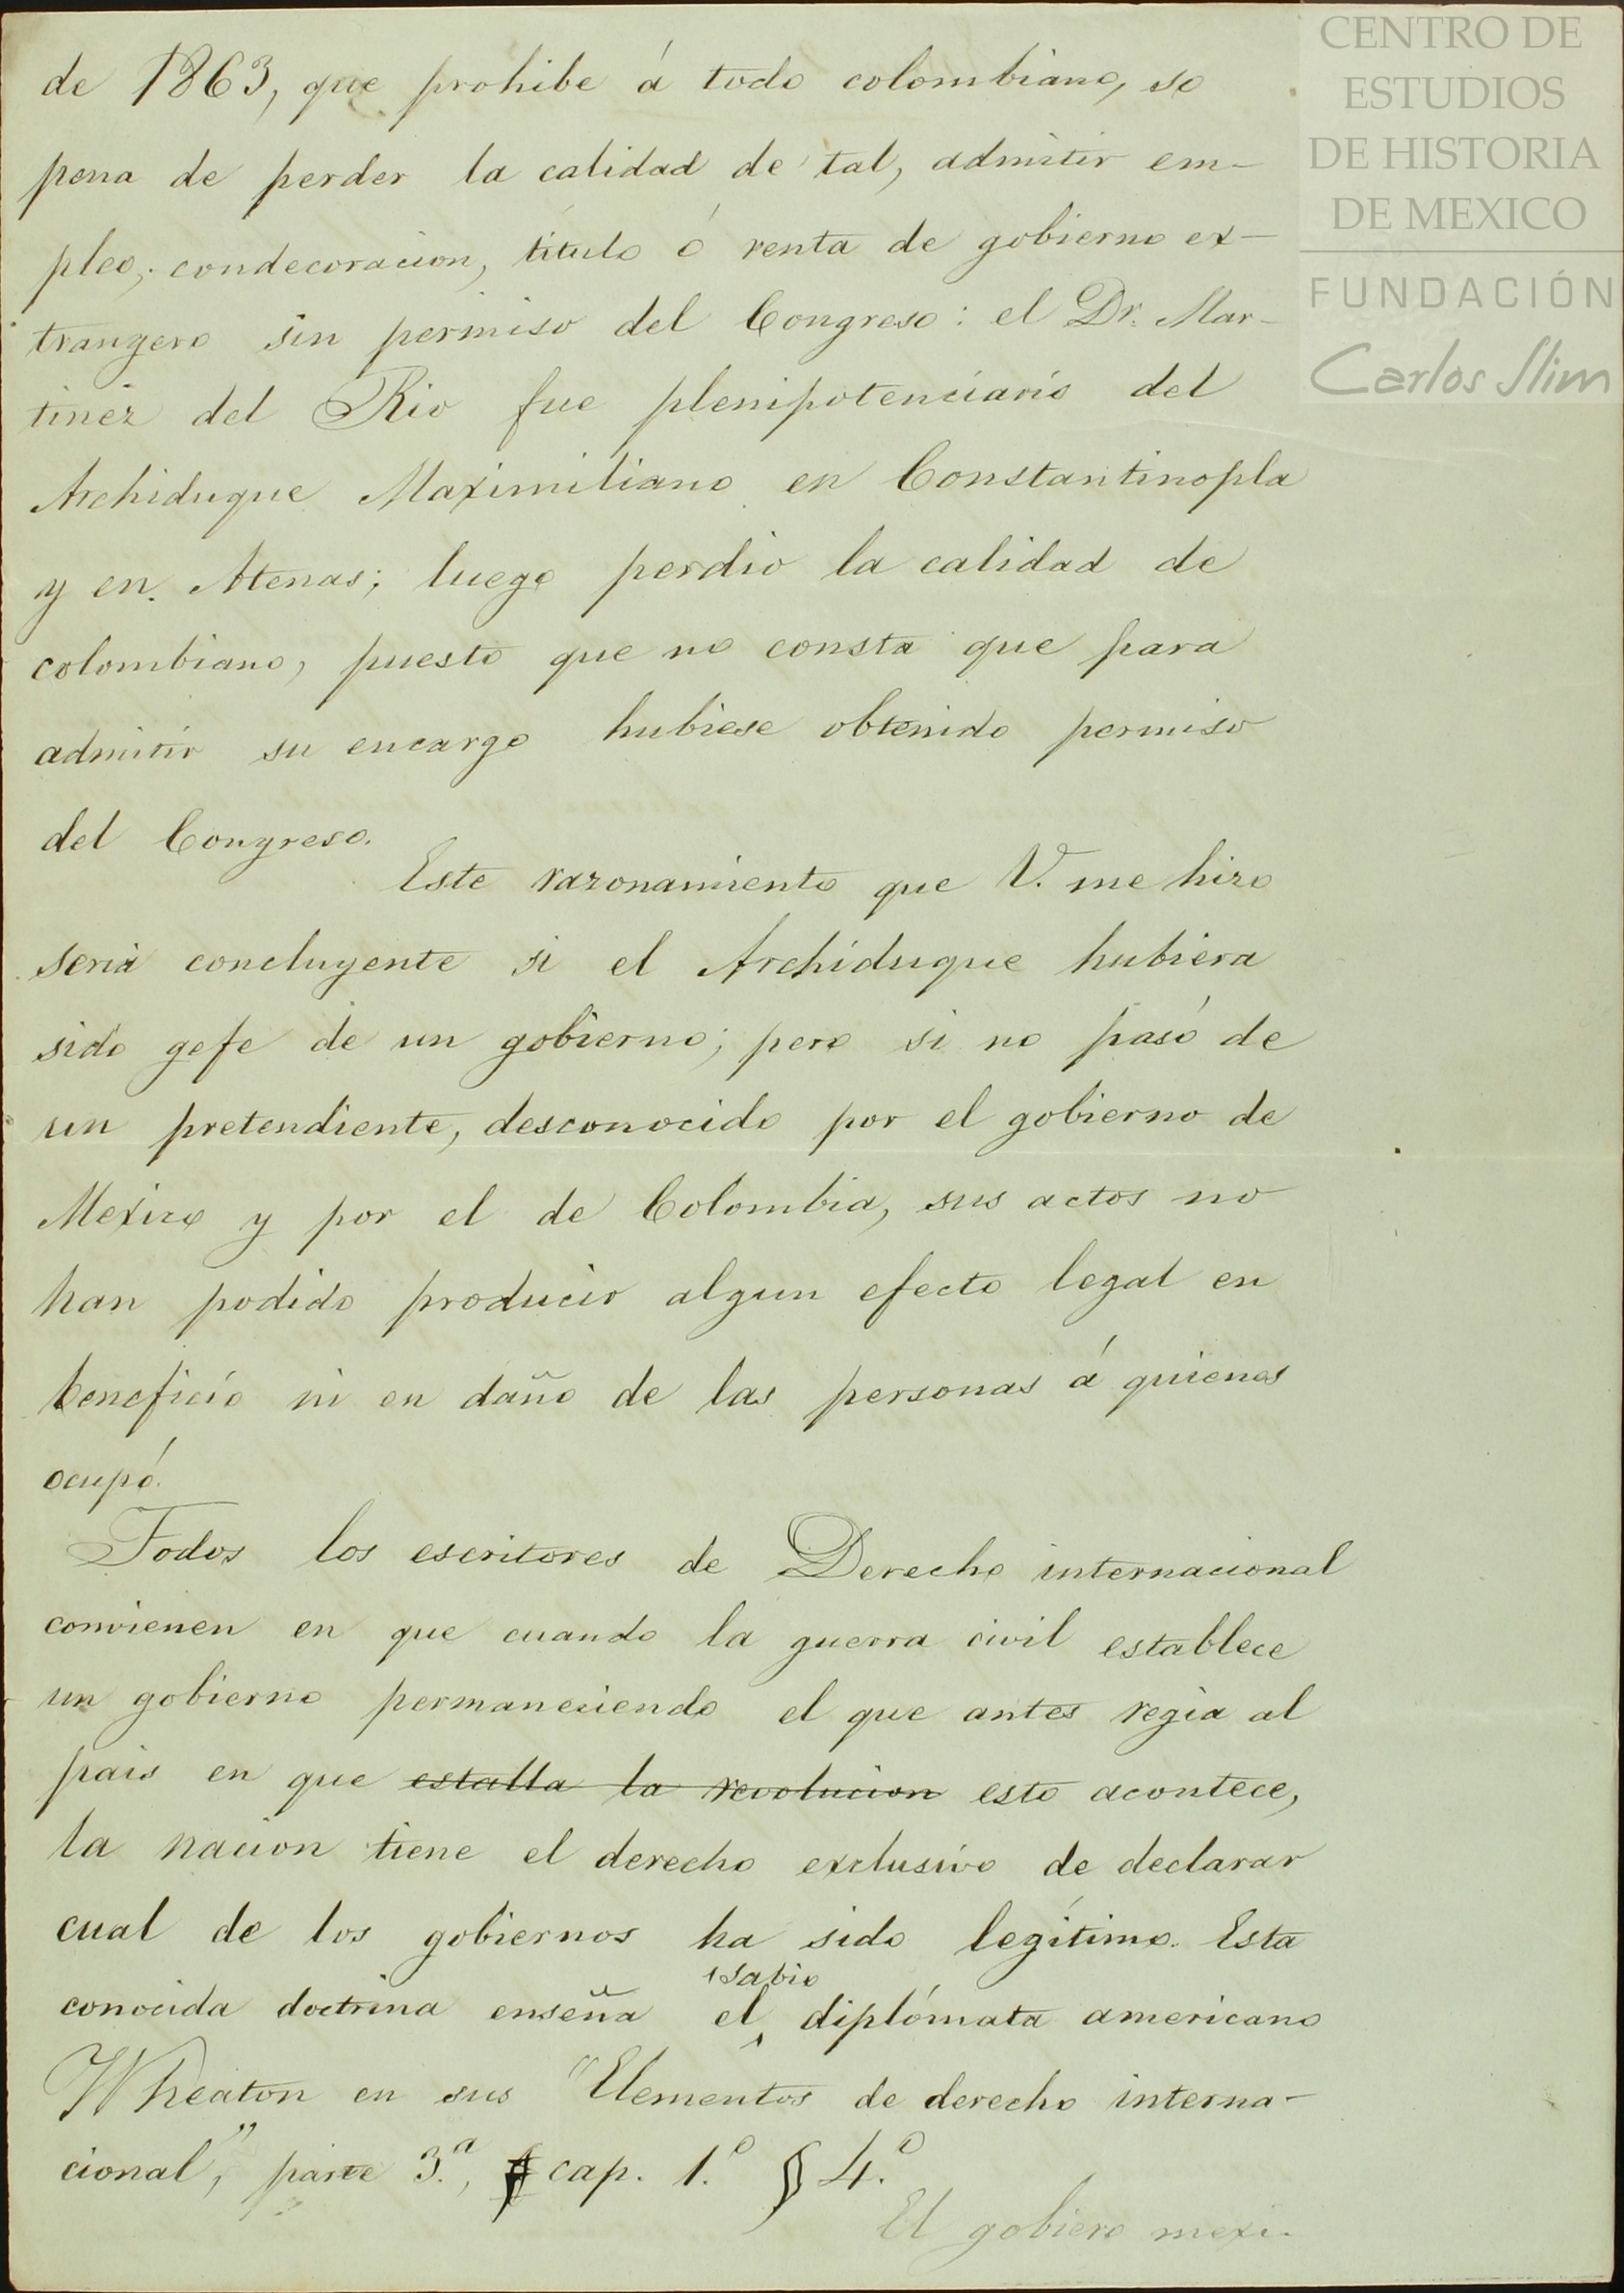 de 1863, que prohibe á todo colombiano, so
pena de perder la calidad de tal, admitir em-
pleo, condecoracion, título ó renta de gobierno ex-
trangero sin permiso del Congreso: el Dr. Mar-
tinez del Rio fue plenipotenciario del
Archiduque Maximiliano en Constantinopla
y en Atenas; luego perdio la calidad de
colombiano, puesto que no consta que para
admitir su encargo hubiese obtenido permiso
del Congreso.
Este razonamiento que V. me hizo
seria concluyente si el Archiduque hubiera
sido gefe de un gobierno; pero si no pasó de
un pretendiente, desconocido por el gobierno de
Mexico y por el de Colombia, sus actos no
han podido producir algun efecto legal en
beneficio ni en daño de las personas á quienes
ocupó.
Todos los escritores de Derecho internacional
convienen en que cuando la guerra civil establece
un gobierno permaneciendo el que antes regia al
pais en que estalla la revolucion esto acontece,
la nacion tiene el derecho exclusivo de declarar
cual de los gobiernos ha sido legítimo. Esta
conocida doctrina enseña el sabio diplómata americano
Wheaton en sus "Elementos de derecho interna-
cional", parte 3.a, cap. 1.o § 4.o
El gobiero mexi-
CENTRO DE
ESTUDIOS
DE HISTORIA
DE MEXICO
FUNDACIÓN
Carlos Slim